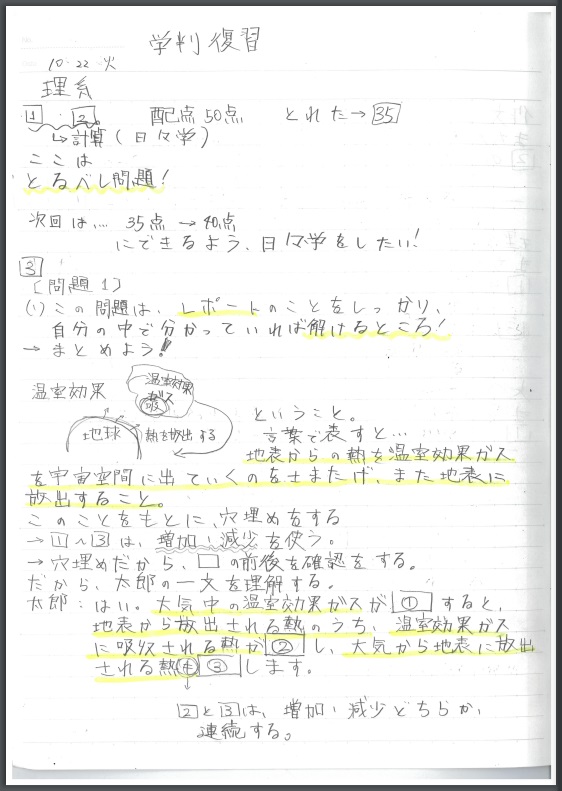 学判復習
10.22 火
理系
1 2. 配点50点 とれた→35
↳計算(日々学)
ここは
とるべし問題!
次回は… 35点→40点
にできるよう、日々学をしたい!
3
[問題1]
(1)この問題は、レポートのことをしっかり、
自分の中で分かっていれば解けるところ!
→まとめよう!!
温室効果
温室効果
ガス
地球 熱を放出する
ということ。
言葉で表すと…
地表からの熱を温室効果ガス
を宇宙空間に出ていくのをさまたげ、また地表に
放出すること。
このことをもとに、穴埋めをする
→1~3は、増加・減少を使う。
→穴埋めだから、□の前後を確認をする。
だから、太郎の一文を理解する。
太郎:はい。大気中の温室効果ガスが①すると、
地表から放出される熱のうち、温室効果ガス
に吸収される熱が②し、大気から地表に放出
される熱も③します。
2と3は、増加・減少どちらか、
連続する。